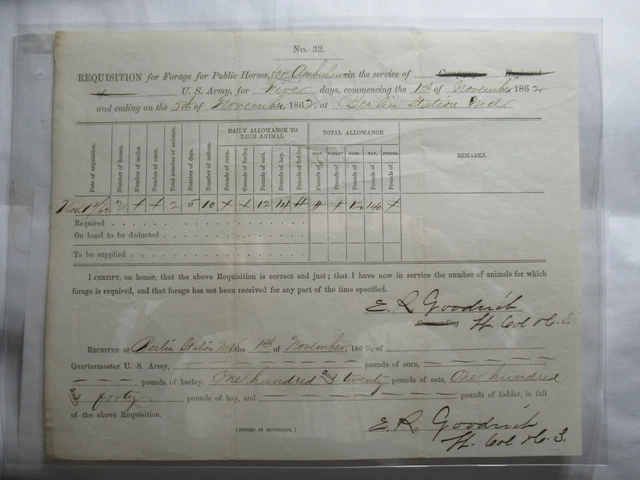 No. 32.
REQUISITION for Forage for Public Horses, for Ambulance in the service of Company Regiment
of U. S. Army, for Five days, commencing the 1st of November 1862
and ending on the 5th of November 1862, at Berlin Station Md
DAILY ALLOWANCE TO EACH ANIMAL. TOTAL ALLOWANCE.
Date of requisition. Number of horses. Number of mules. Number of oxen. Total number of animals. Number of days. Number of rations. Pounds of corn. Pounds of barley. Pounds of oats. Pounds of hay. Pounds of fodder. Pounds of Pounds of Pounds of Pounds of Pounds of REMARKS.
Nov 1st/62 2 2 5 10 12 14 120 140
Required
On hand to be deducted
To be supplied
I CERTIFY, on honor, that the above Requisition is correct and just; that I have now in service the number of animals for which
forage is required, and that forage has not been received for any part of the time specified.
E. R. Goodrich
Commanding Lt. Col & C. S.
RECEIVED at Berlin Station Md 1st of November, 1862, of
Quartermaster U. S. Army, pounds of corn,
pounds of barley, One hundred and twenty pounds of oats, One hundred
and forty pounds of hay, and pounds of fodder, in full
of the above Requisition.
E. R. Goodrich
(SIGNED IN DUPLICATE.) Lt. Col & C. S.